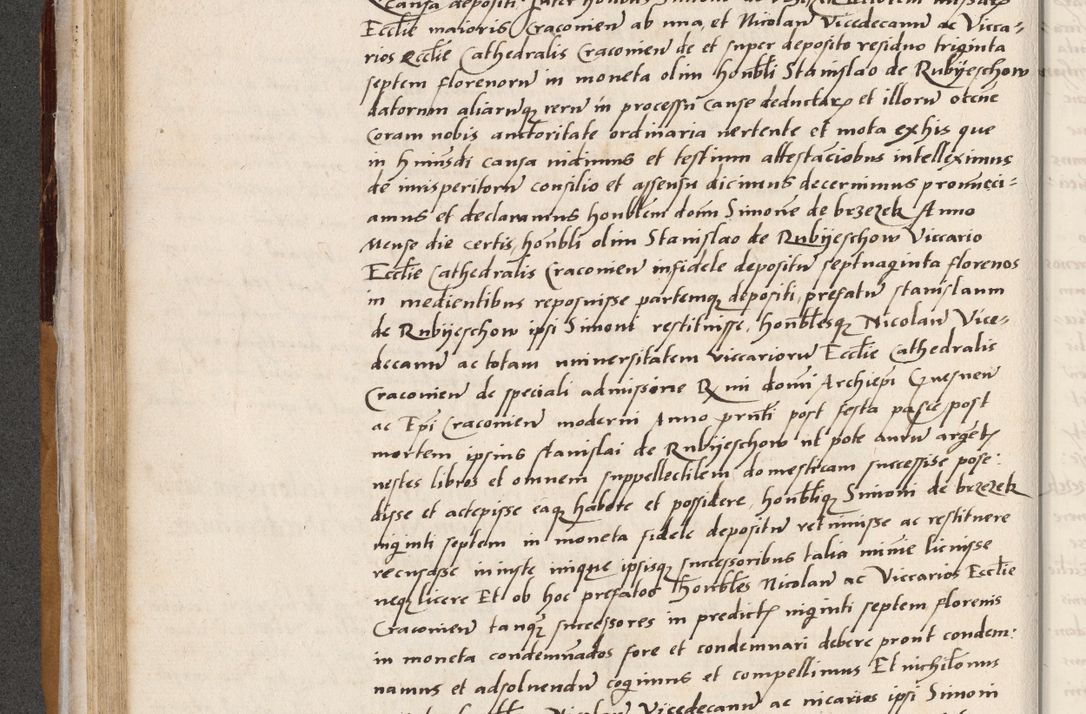 Causa depositi inter honbles Simone de
Ecclie maioris Cracovien ab una, et Nicolau Vicedecanu ac Vicca=
rios Ecclie Cathedralis Cracovien de et super deposito residuo triginta
septem florenoru in moneta olim honbli Stanislao de Rubyeschow
datorum aliaruq reru in processu cause deductar et illoru occne
coram nobis auctoritate ordinaria vertente et mota ex his que
in huiusdi causa vidimus et testium attestaciobus intelleximus
de iurisperitoru consilio et assensu dicimus decernimus pronūcci=
amus et declaramus honblem domi Simone de brzezek Anno
Mense die certis, honbli olim Stanislao de Rubyeschow Viccario
Ecclie Cathedralis Cracovien in fidele depositu septuaginta florenos
in medientibus reposuisse partemq depositi, prefatu stanislaum
de Rubyeschow ipsi Simoni restituisse, honblesq Nicolau Vice=
decanu ac totam universitatem viccarioru Ecclie Cathedralis
Cracovien de speciali admissione R mi domi Archiepi Gnesnen
ac Epi Cracovien moderni Anno prnti post festa pasce post
mortem ipsius stanislai de Rubyeschow ut pote auru argēt
vestes libros et omnem suppellectilem domesticam successise posse:
disse et accepisse eaq habere et possidere, honbliq Simoni de brzezek
viginti septem in moneta fidele depositu retinuisse ac restituere
recusasse iniuste inique ipsisq successoribus talia minie licuisse
neq licere Et ob hoc prefatos Honbles Nicolau ac Viccarios Ecclie
Cracovien tanq successores in predict viginti septem florenis
in moneta condemnados fore et condemnari debere prout condem:
namus et adsolvendu cogimus et compellimus Et nichilonus
Nicolau Vicedecanu ac vicarios ipsi Simoni